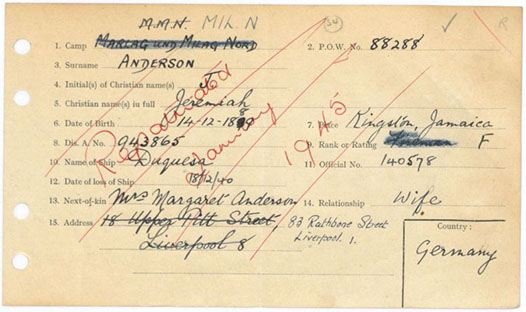 M.M.N. MIL. N
34
R
1. Camp MARLAG UND MILAG NORD 2. P.O.W. No. 88288
3. Surname ANDERSON
4. Initial(s) of Christian name(s) J.
5. Christian name(s) in full Jeremiah
6. Date of Birth 14-12-1898 7. Place Kingston, Jamaica
8. Dis. A. No. 943865 9. Rank or Rating Fireman F
10. Name of Ship Duquesa 11. Official No. 140578
12. Date of loss of Ship 18/12/40
13. Next-of-kin Mrs Margaret Anderson 14. Relationship Wife
15. Address 18 Upper Pitt Street, 83 Rathbone Street
Liverpool 8 Liverpool. 1.
Country :
Germany
Repatriated
January
1945